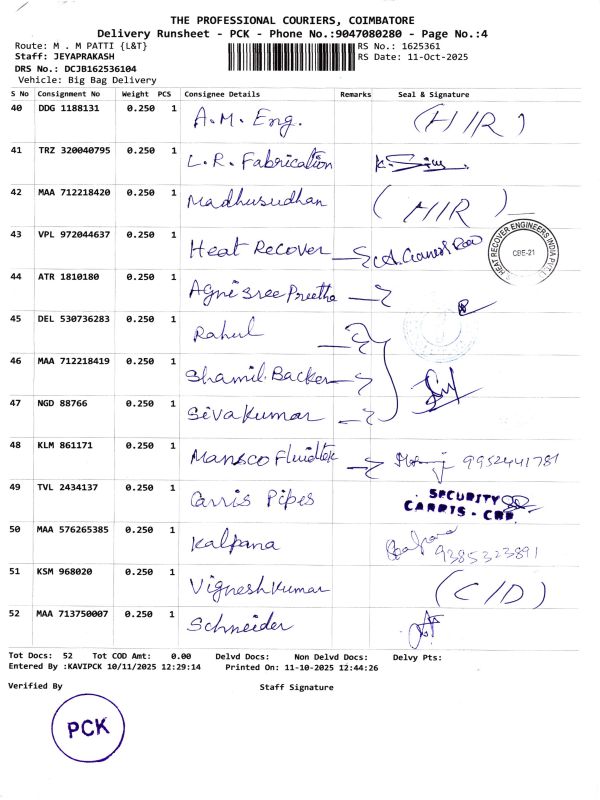 THE PROFESSIONAL COURIERS, COIMBATORE
Delivery Runsheet - PCK - Phone No.:9047080280 - Page No.:4
Route: M . M PATTI {L&T} RS No.: 1625361
Staff: JEYAPRAKASH RS Date: 11-Oct-2025
DRS No.: DCJB162536104
Vehicle: Big Bag Delivery
S No Consignment No Weight PCS Consignee Details Remarks Seal & Signature
40 DDG 1188131 0.250 1 A.M. Eng. (H/R)
41 TRZ 320040795 0.250 1 L.R. Fabrication
42 MAA 712218420 0.250 1 Madhusudhan (H/R)
43 VPL 972044637 0.250 1 Heat Recover
HEAT RECOVER ENGINEERS INDIA PVT. L
CBE-21
44 ATR 1810180 0.250 1 Agnisree Preetha
45 DEL 530736283 0.250 1 Rahul
46 MAA 712218419 0.250 1 Shamil.Backer
47 NGD 88766 0.250 1 Sivakumar
48 KLM 861171 0.250 1 Mansco Fluidtek 9952441781
49 TVL 2434137 0.250 1 Carris Pipes SECURITY
CARRIS - CBE.
50 MAA 576265385 0.250 1 Kalpana Kalpana
9385323891
51 KSM 968020 0.250 1 Vigneshkumar (C/D)
52 MAA 713750007 0.250 1 Schneider
Tot Docs: 52 Tot COD Amt: 0.00 Delvd Docs: Non Delvd Docs: Delvy Pts:
Entered By :KAVIPCK 10/11/2025 12:29:14 Printed On: 11-10-2025 12:44:26
Verified By Staff Signature
PCK